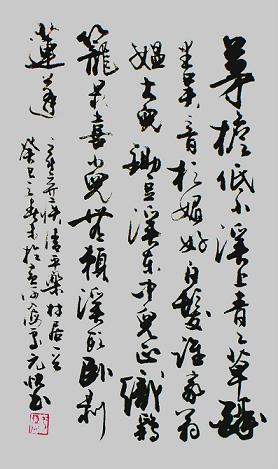 茅檐低小溪上青々草醉
里吴音相媚好白髮誰家翁
媪大兒鋤豆溪東中兒正織鷄
籠最喜小兒無賴溪頭卧剥
蓮蓬
辛弃疾清平樂村居
癸巳之春於元書